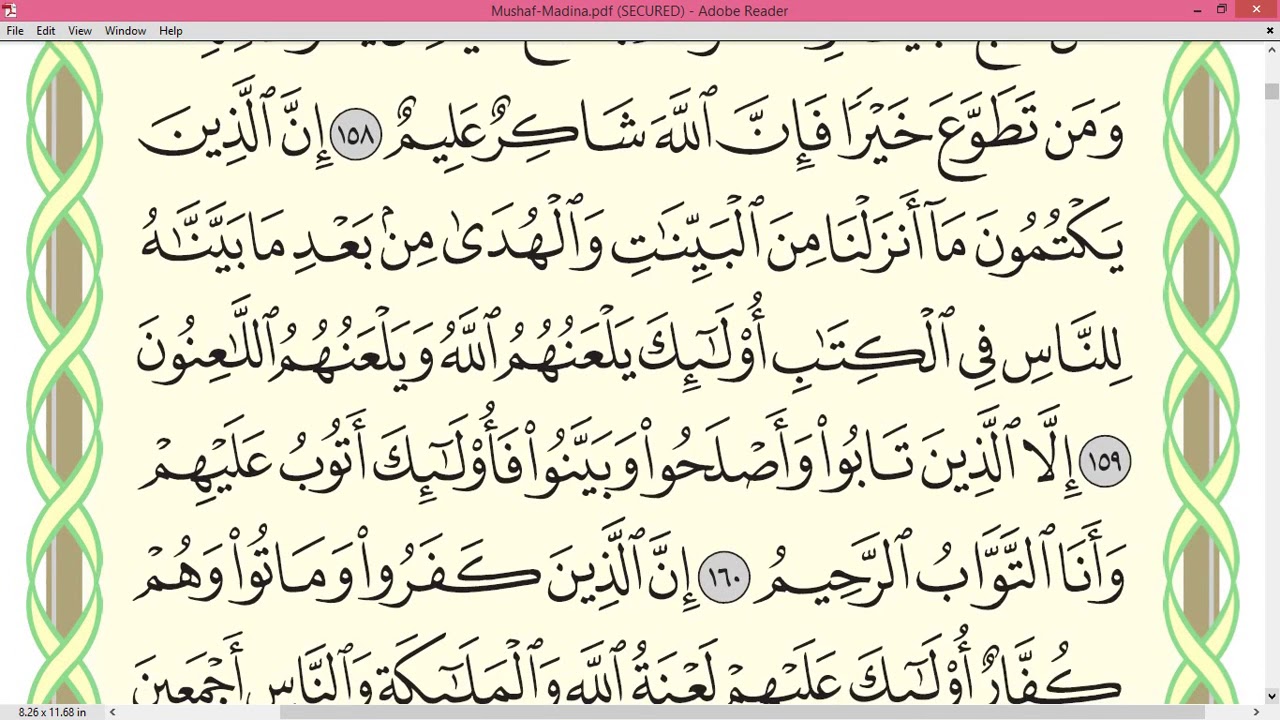 Mushaf-Madina.pdf (SECURED) - Adobe Reader
File Edit View Window Help
وَمَن تَطَوَّعَ خَيْرًا فَإِنَّ ٱللَّهَ شَاكِرٌ عَلِيمٌ ١٥٨ إِنَّ ٱلَّذِينَ
يَكْتُمُونَ مَآ أَنزَلْنَا مِنَ ٱلْبَيِّنَٰتِ وَٱلْهُدَىٰ مِنۢ بَعْدِ مَا بَيَّنَّٰهُ
لِلنَّاسِ فِى ٱلْكِتَٰبِ أُو۟لَٰٓئِكَ يَلْعَنُهُمُ ٱللَّهُ وَيَلْعَنُهُمُ ٱللَّٰعِنُونَ
١٥٩ إِلَّا ٱلَّذِينَ تَابُوا۟ وَأَصْلَحُوا۟ وَبَيَّنُوا۟ فَأُو۟لَٰٓئِكَ أَتُوبُ عَلَيْهِمْ
وَأَنَا ٱلتَّوَّابُ ٱلرَّحِيمُ ١٦٠ إِنَّ ٱلَّذِينَ كَفَرُوا۟ وَمَاتُوا۟ وَهُمْ
كُفَّارٌ أُو۟لَٰٓئِكَ عَلَيْهِمْ لَعْنَةُ ٱللَّهِ وَٱلْمَلَٰٓئِكَةِ وَٱلنَّاسِ أَجْمَعِينَ
8.26 x 11.68 in